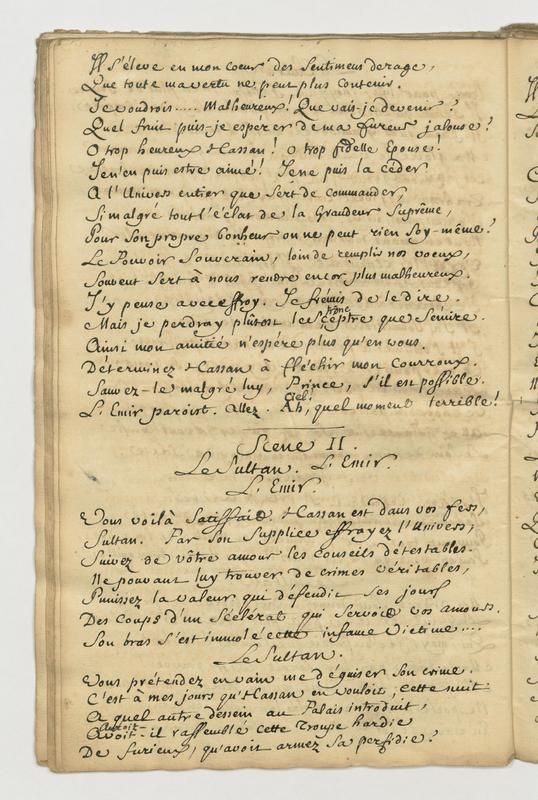 Il s'éleve en mon coeur des Sentimens de rage,
Que toute ma vertu ne peut plus contenir.
Je voudrois..... Malheureux! Que vais-je devenir?
Quel fruit puis-je espérer de ma fureur jalouse?
O trop heureux Hassan! O trop fidelle Epouse!
Je n'en puis estre aimé! Je ne puis la céder
A l'Univers entier que Sert de commander,
Si malgré tout l'éclat de la Grandeur Suprême,
Pour Son propre bonheur on ne peut rien Soy-même?
Le Pouvoir Souverain, loin de remplir nos voeux,
Souvent Sert à nous rendre encor plus malheureux.
J'y pense avec effroy. Je frémis de le dire.
trône
Mais je perdray plûtost le Sceptre que Sémire.
Ainsi mon amitié n'espère plus qu'en vous.
Determinez Hassan à fléchir mon Courroux.
Sauvez-le malgré luy, Prince, s'il est possible.
Ciel!
L'Emir paroist. Allez. Ah, quel moment terrible!
Scene II.
Le Sultan. L'Emir.
L'Emir.
Vous voilà Satisfait. Hassan est dans vos fers,
Sultan. Par Son Supplice effrayez l'Univers;
Suivez de vôtre amour les Conseils détestables.
Ne pouvant luy trouver de crimes véritables,
Punissez la valeur qui défendit Ses jours
Des Coups d'un Scélérat qui Servoit vos amours.
Son bras S'est immolé cette infame Victime....
Le Sultan.
Vous prétendez en vain me déguiser Son crime.
C'est à mes jours qu'Hassan en vouloit cette nuit
A quel autre dessein au Palais introduit,
Auroit-
Avoit-il rassemblé cette Troupe hardie
De furieux, qu'avoit armez Sa perfidie?